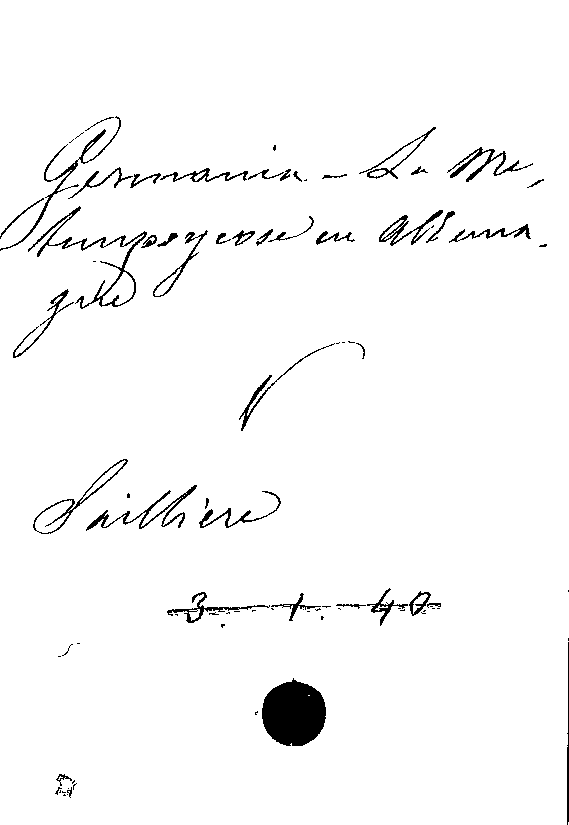 Germania - La Me-
tempsycose en Allema-
gne
V
Saillière
3. 1. 40